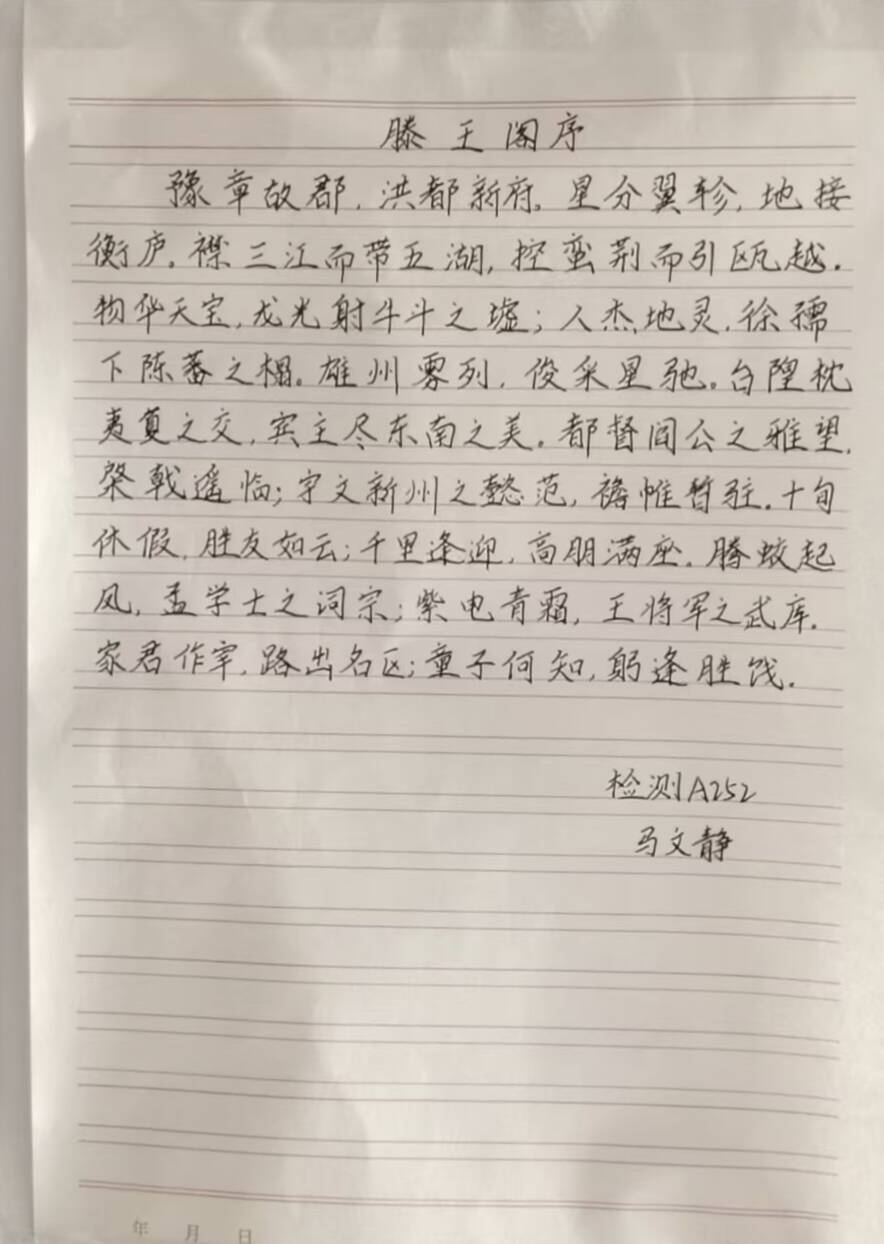 滕王阁序
豫章故郡,洪都新府。星分翼轸,地接
衡庐。襟三江而带五湖,控蛮荆而引瓯越。
物华天宝,龙光射牛斗之墟;人杰地灵,徐孺
下陈蕃之榻。雄州雾列,俊采星驰。台隍枕
夷夏之交,宾主尽东南之美。都督阎公之雅望,
棨戟遥临;宇文新州之懿范,襜帷暂驻。十旬
休假,胜友如云;千里逢迎,高朋满座。腾蛟起
凤,孟学士之词宗;紫电青霜,王将军之武库。
家君作宰,路出名区;童子何知,躬逢胜饯。
检测A252
马文静
年 月 日